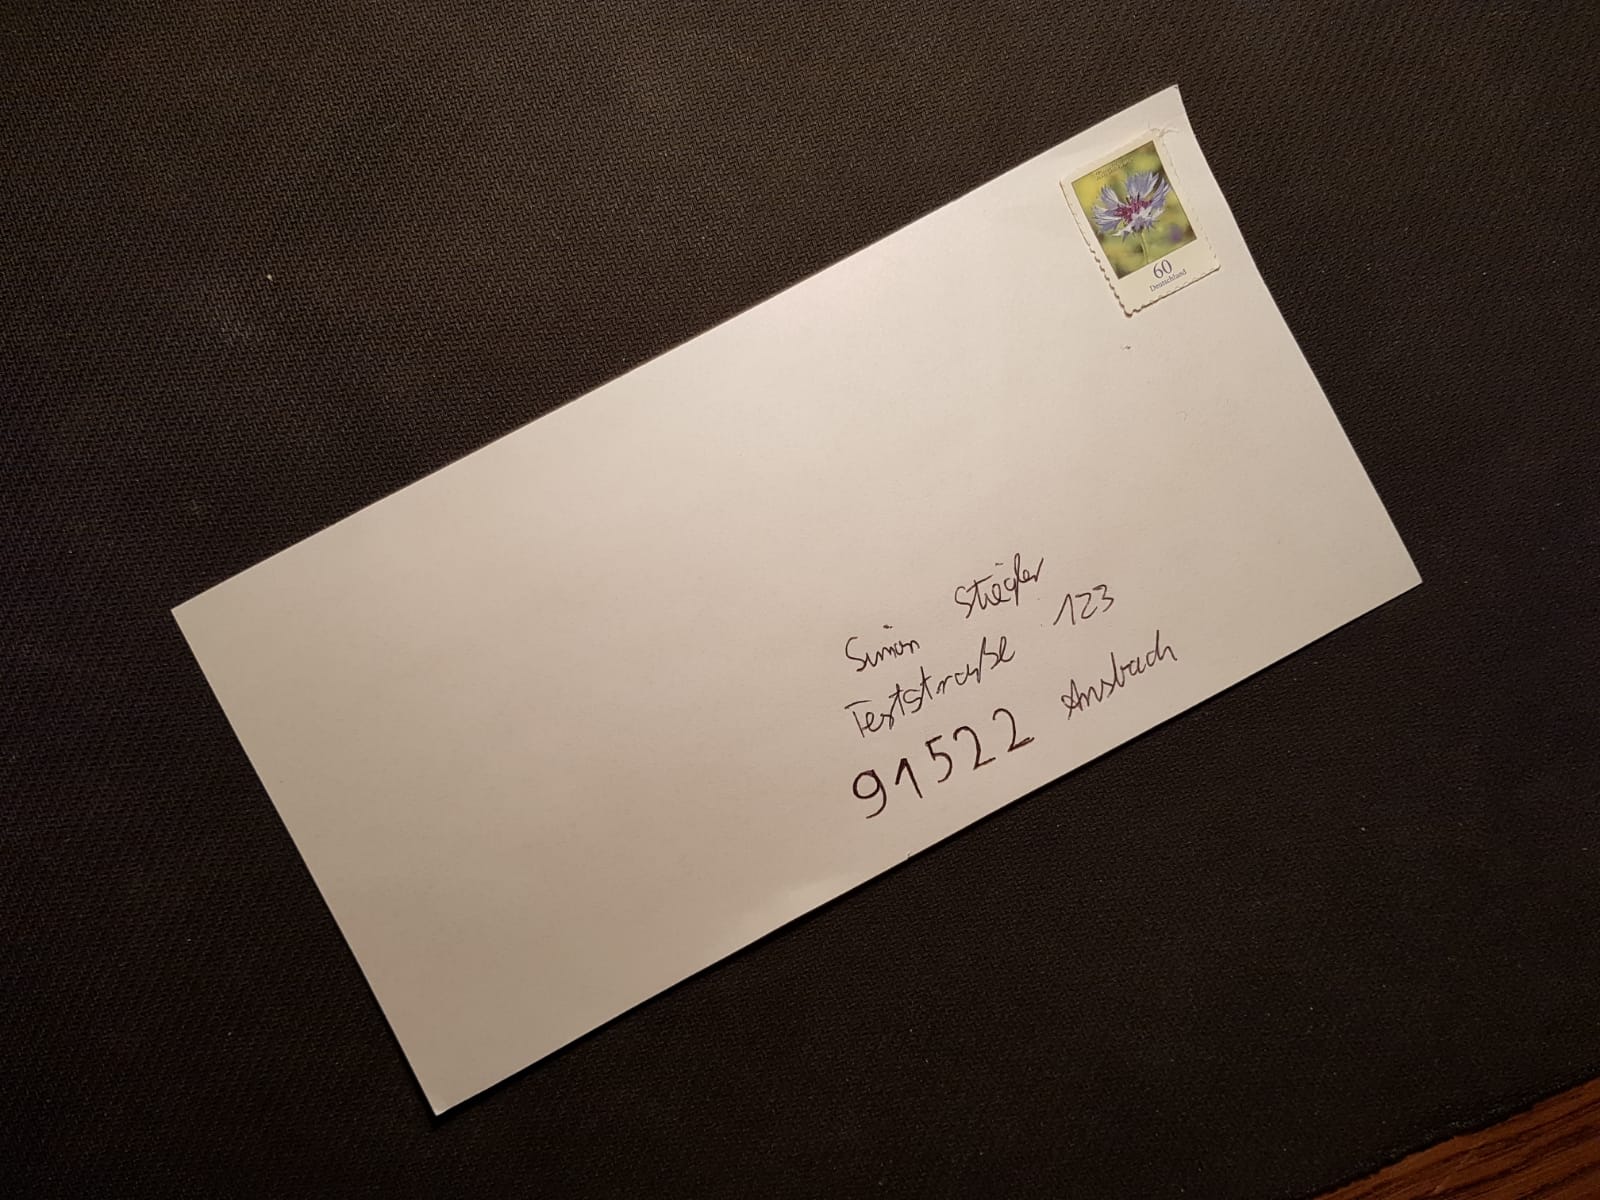 60
Deutschland
Simon Stiegler
Teststraße 123
91522 Ansbach